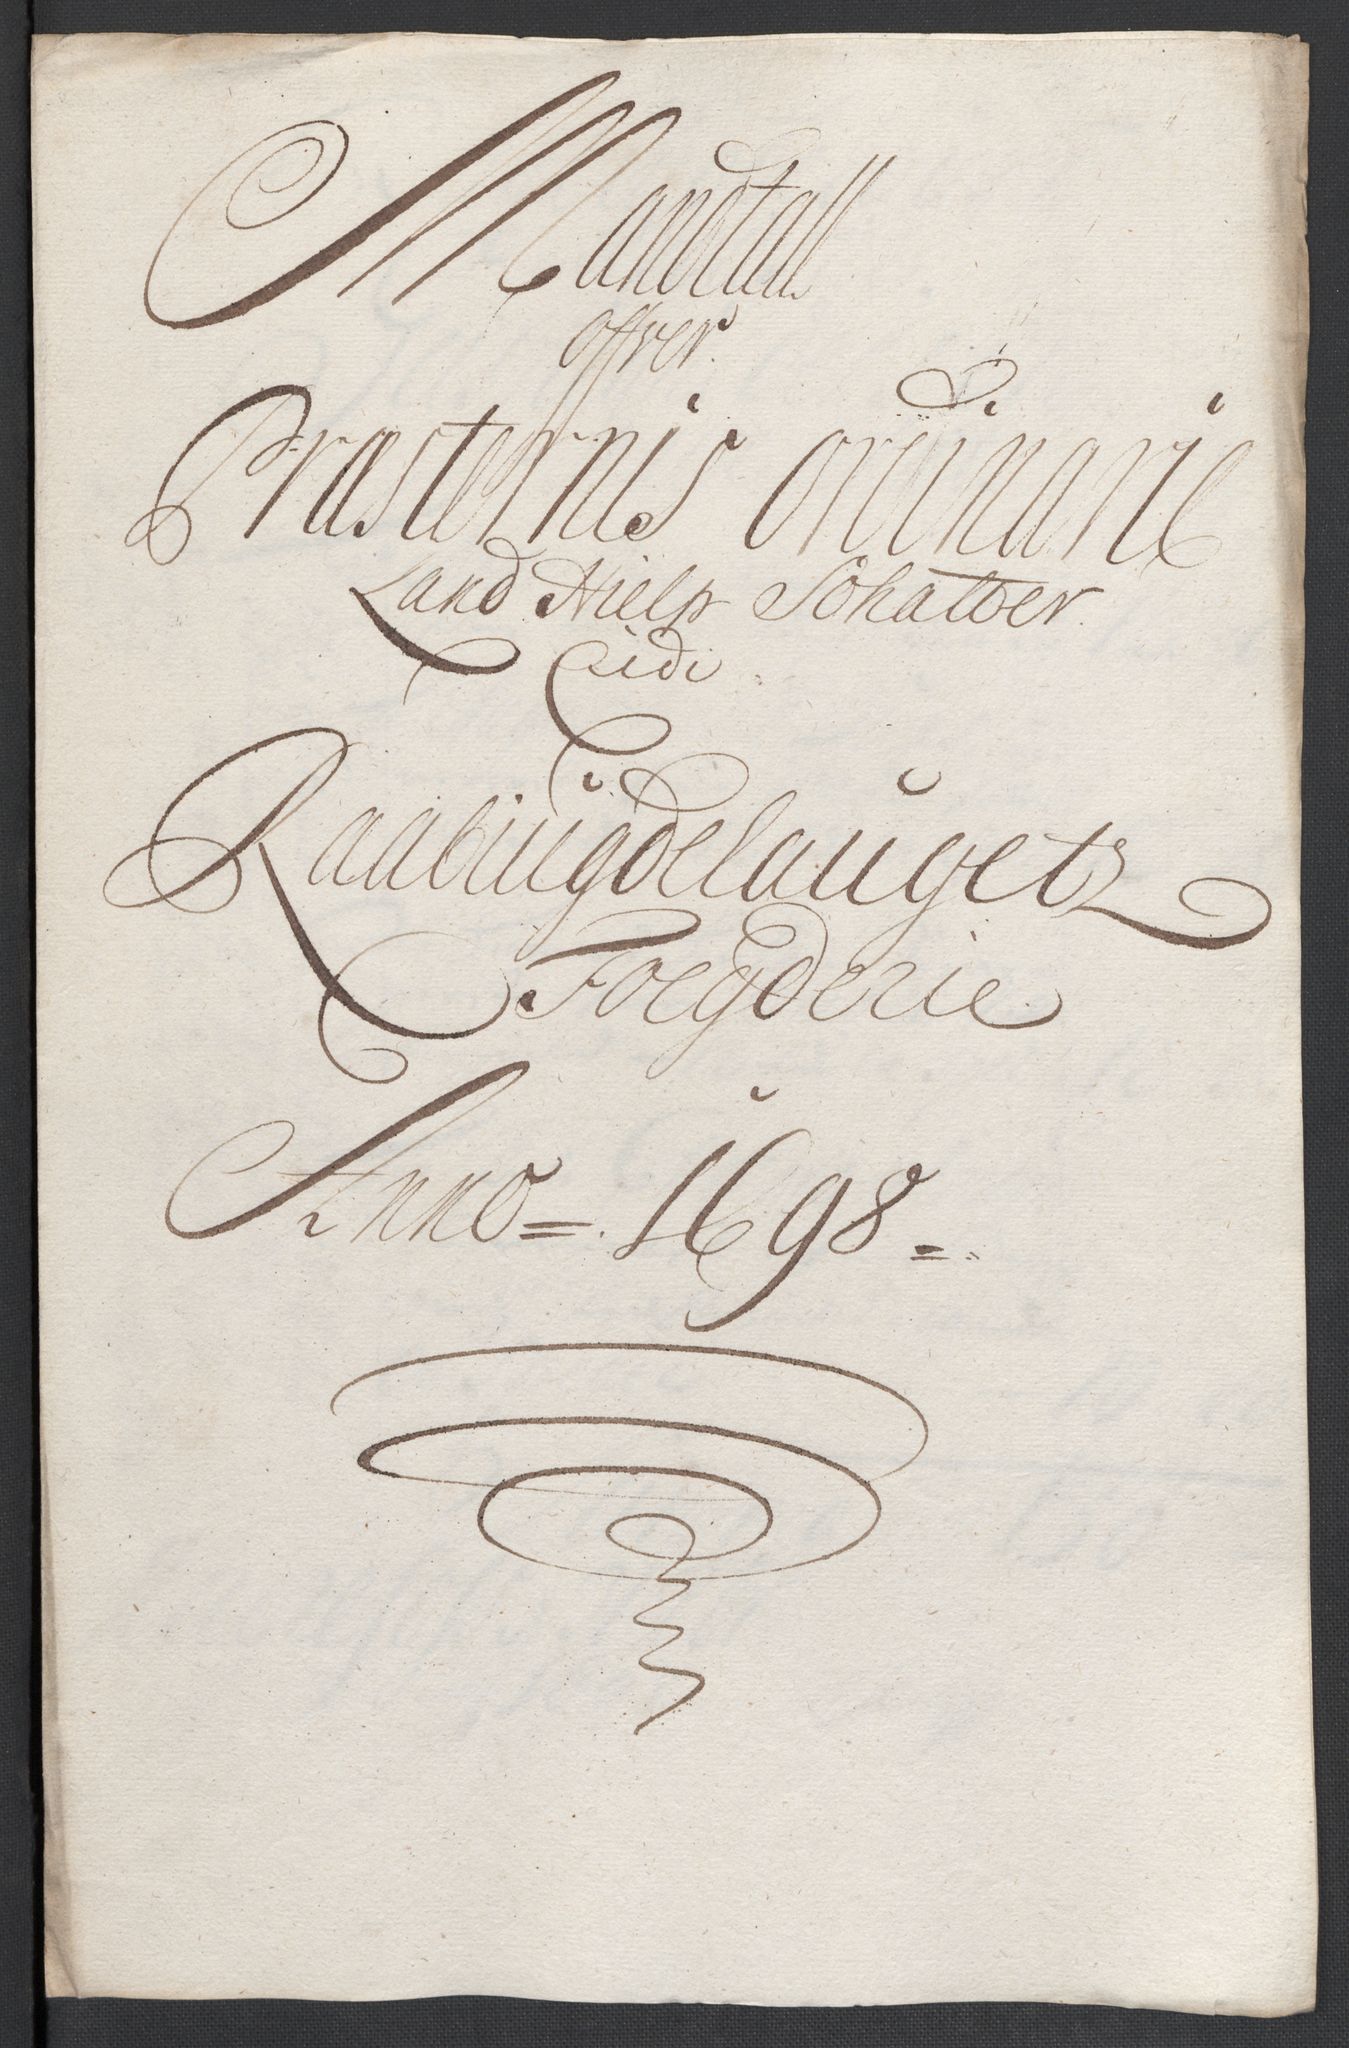 Mandtall
offver
Præsternis ordinarie
Land Hielp Schatter
udi
Raabiugdelaugetz
Foegderie
Anno = 1698 =